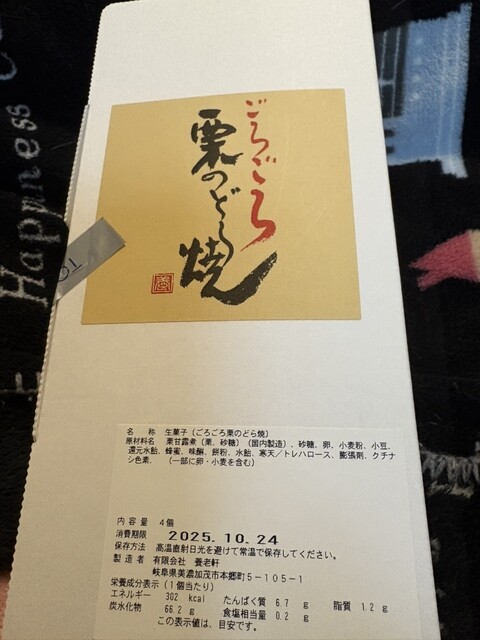 ごろごろ
栗のどら焼
Happyness
01
名 称 生菓子(ごろごろ栗のどら焼)
原材料名 栗甘露煮(栗、砂糖)(国内製造)、砂糖、卵、小麦粉、小豆、
還元水飴、蜂蜜、味醂、餅粉、水飴、寒天/トレハロース、膨張剤、クチナ
シ色素、 (一部に卵・小麦を含む)
内容量 4個
消費期限 2025.10.24
保存方法 高温直射日光を避けて常温で保存してください。
製造者 有限会社 養老軒
岐阜県美濃加茂市本郷町5-105-1
栄養成分表示(1個当たり)
エネルギー 302 kcal たんぱく質 6.7 g 脂質 1.2 g
炭水化物 66.2 g 食塩相当量 0.2 g
この表示値は、目安です。